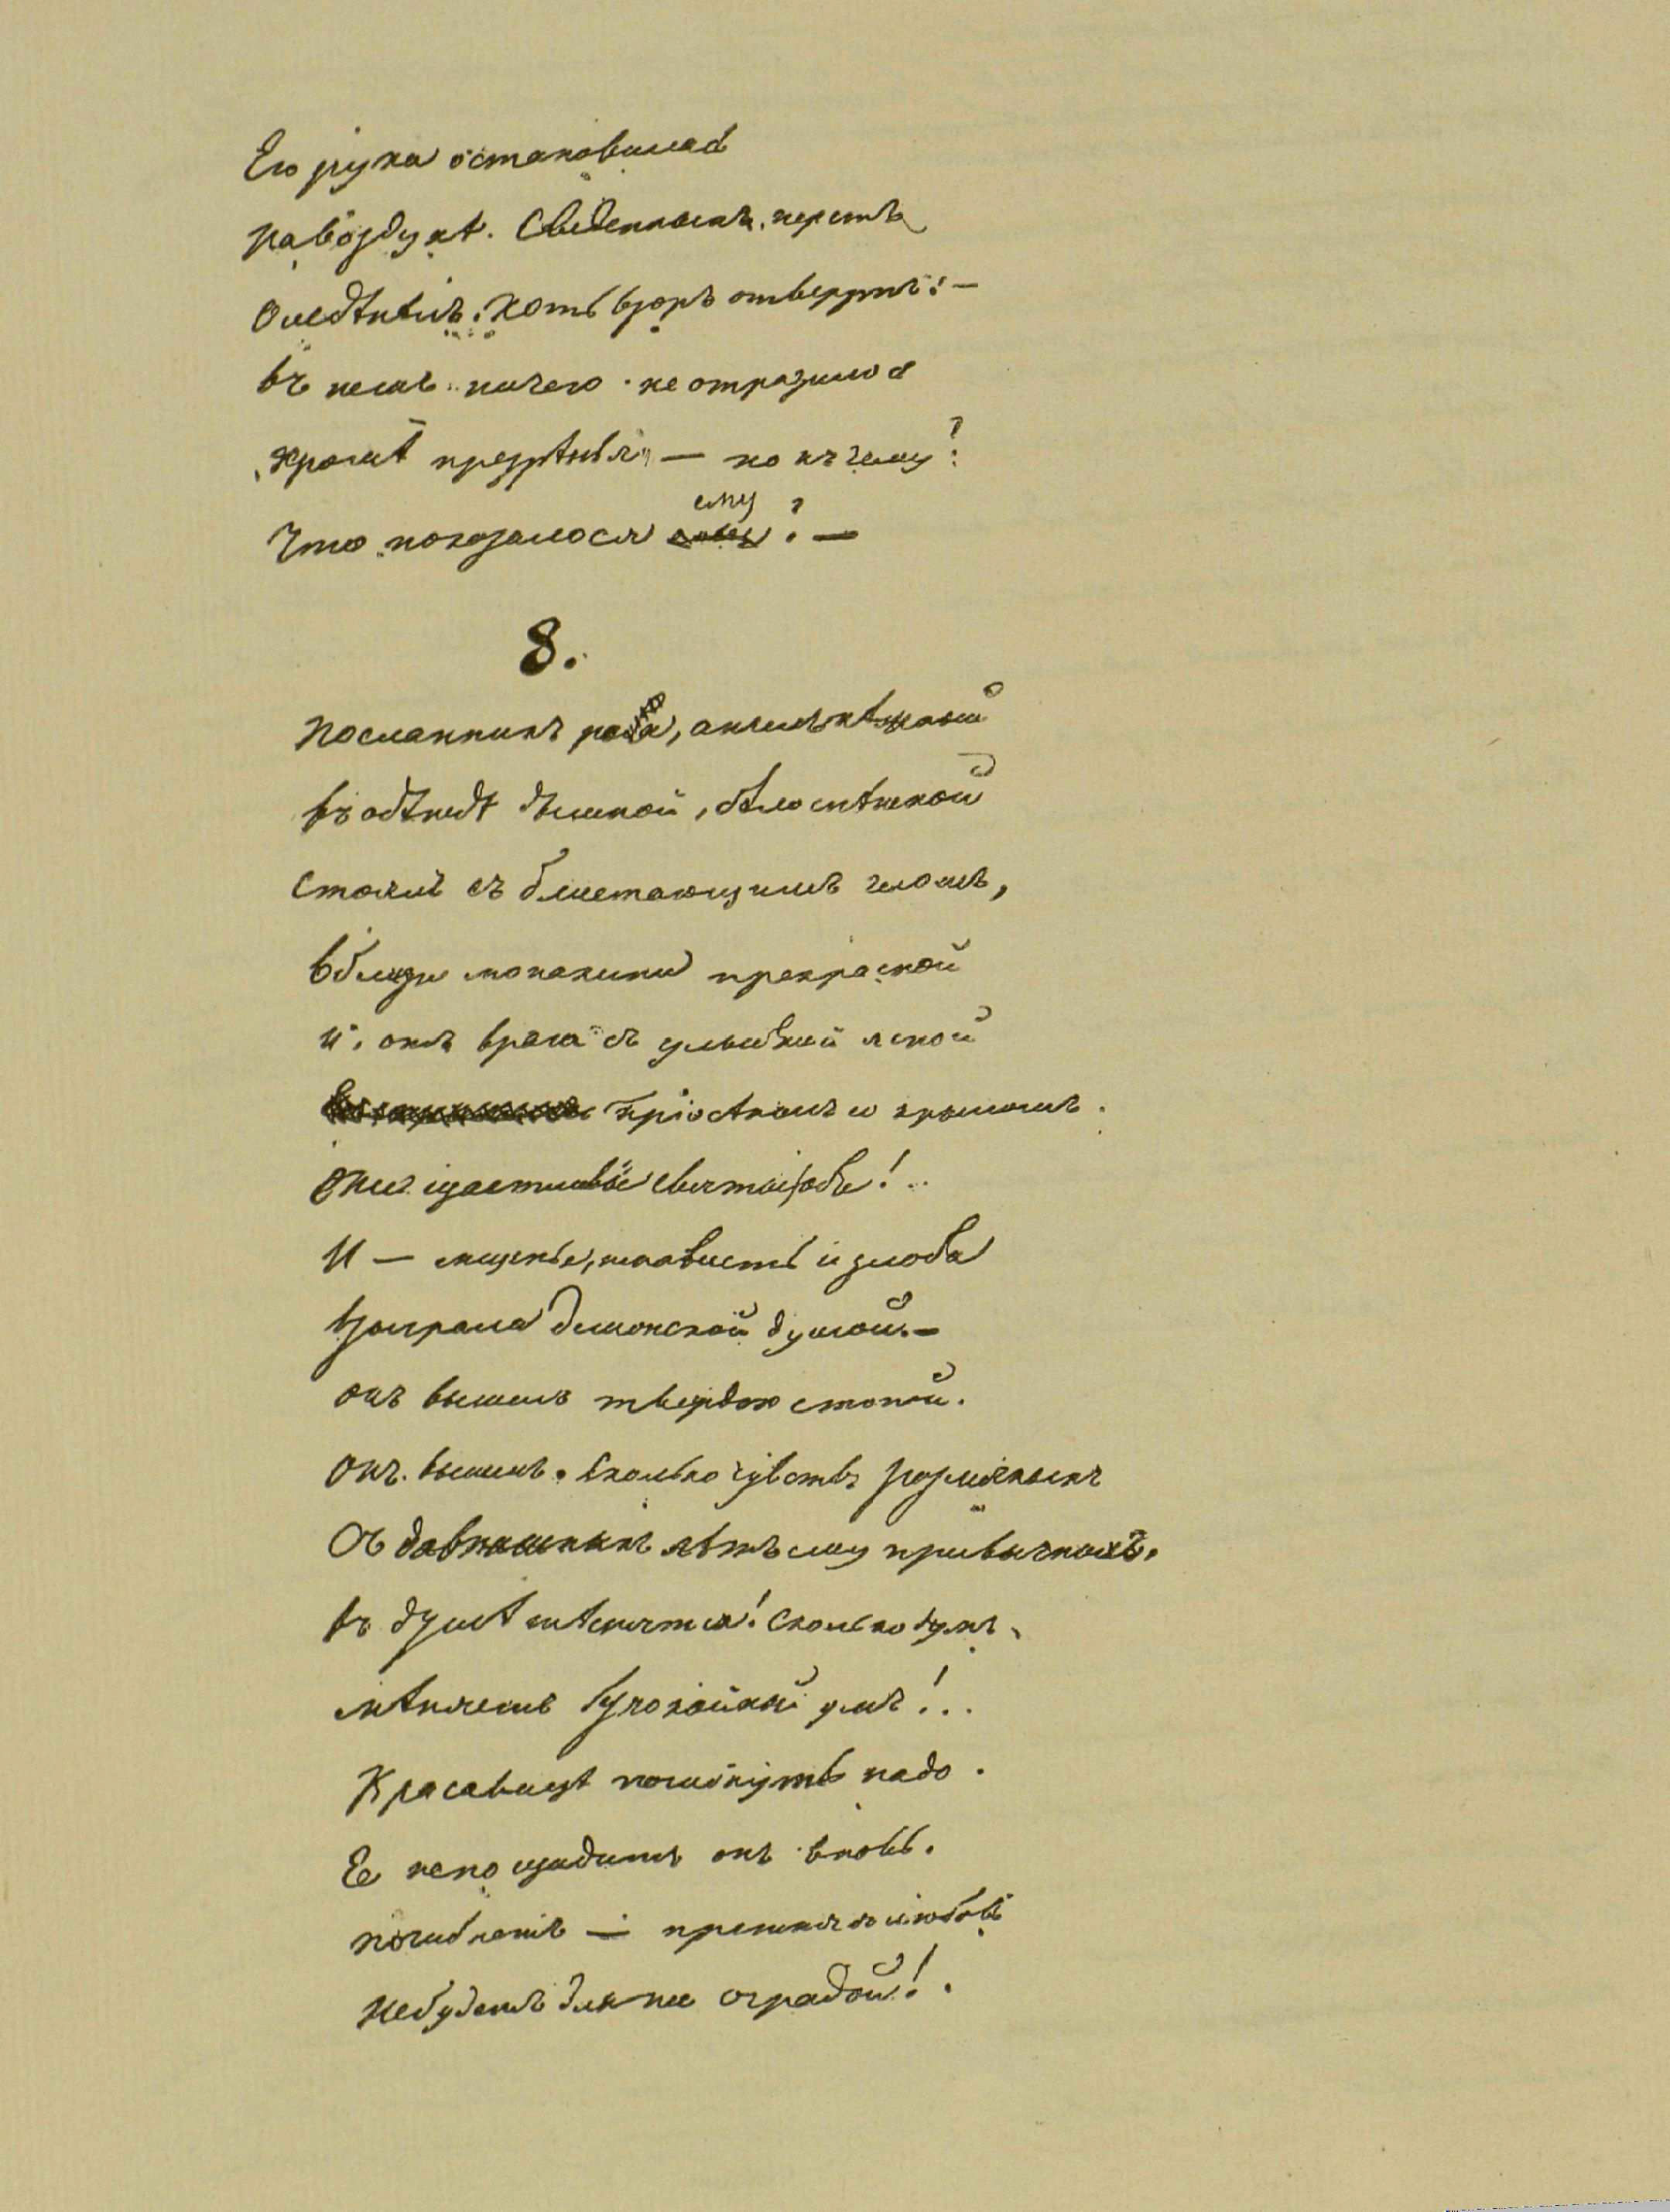 Его рука остановилась
На воздухѣ. Сведенныхъ перстъ
Оледѣнѣлъ. Хоть взоръ отверзтъ: —
Въ немъ ничего не отразилось
Кромѣ презрѣнья — но къ чему?
Что показалося ему? —
8.
Посланникъ рая, ангелъ нѣжный
въ одеждѣ дымной, бѣлоснѣжной
Стоялъ съ блистающимъ челомъ,
Вблизи монахини прекрасной
И онъ врага съ улыбкой ясной
Пріосѣнилъ ю крыломъ.
Они щастливы святы оба!..
И — мщенье, ненависть и злоба
Взыграла демонской душой. —
онъ вышелъ твердою стопой.
Онъ вышелъ. Сколько чувствъ различныхъ
Съ давнишнихъ лѣтъ ему привычныхъ.
въ душѣ тѣснятся! Сколько думъ
мѣняетъ безпокойный умъ!..
Красавицѣ погибнуть надо.
Ее не пощадитъ онъ вновь.
погибнетъ — прежняя любовь
Не будетъ для нее оградой!.